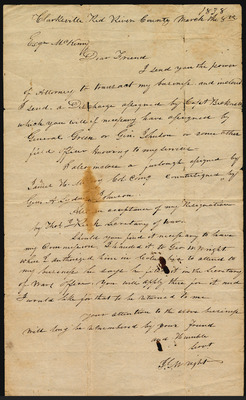 Clarksville Red River County March the 8th
1838
Esqr McKinny
Dear Friend
I send you the power
of Attorney to transact my business and inclosed
I send a Discharge assigned by Capt
which you will if necessary have assigned by
General Green or Gen. Johnson or some other
field officer knowing to my service.
I also inclose a furlough assigned by
James H. Col Comg Countersigned by
Gen. A. Sidney Johnson.
Also an acceptance of my Resignation
by Thos J Rusk Secretary of War.
Should you find it necessary to have
my Commission I handed it to Geo. W. Wright
when I authorized him in to attend to
my business he says he left it in the Secretary
of Wars Office. You will apply there for it and
I would like for that to be returned to me
your attention to the above business
will long be remembered by your friend
and Humble
Servt
Wright